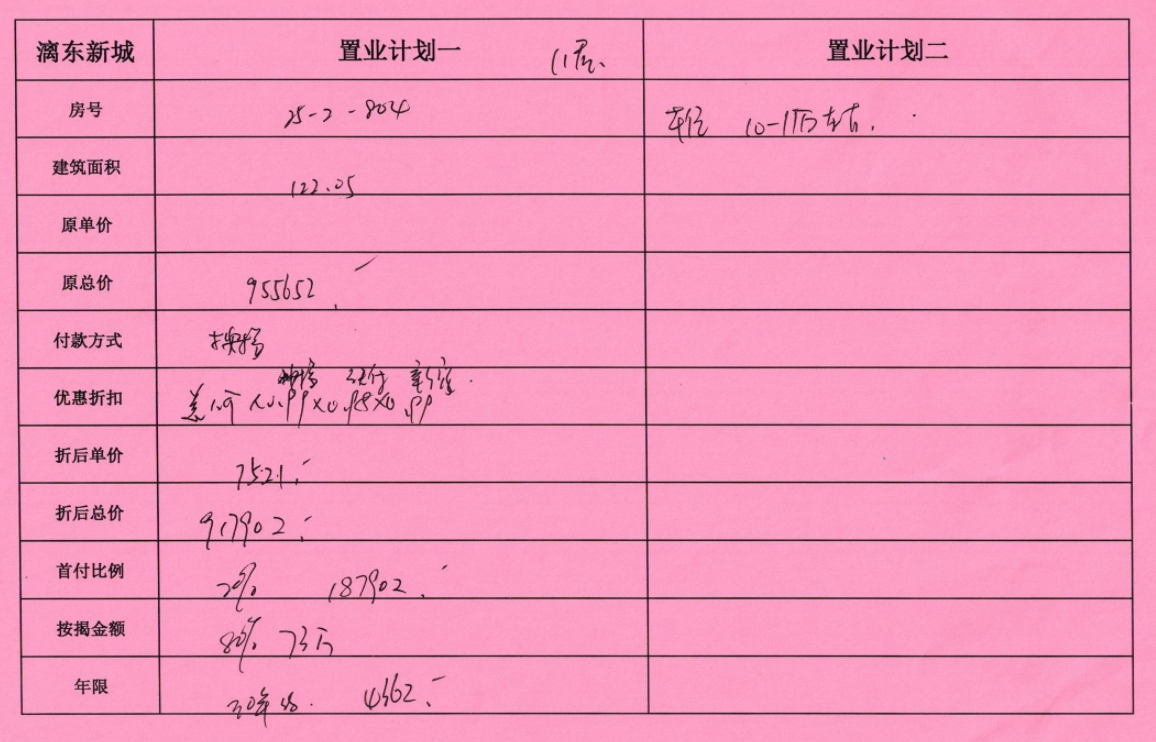 漓东新城 置业计划一 11层、 置业计划二
房号 25-2-804 车位 10-11万左右.
建筑面积 122.05
原单价
原总价 955652.
付款方式 按揭
按揭 首付
优惠折扣 ×0.99×0.98×0.99
折后单价 7521.
折后总价 917902.
首付比例 20% 187902.
按揭金额 80% 73万
年限 30年 4362.